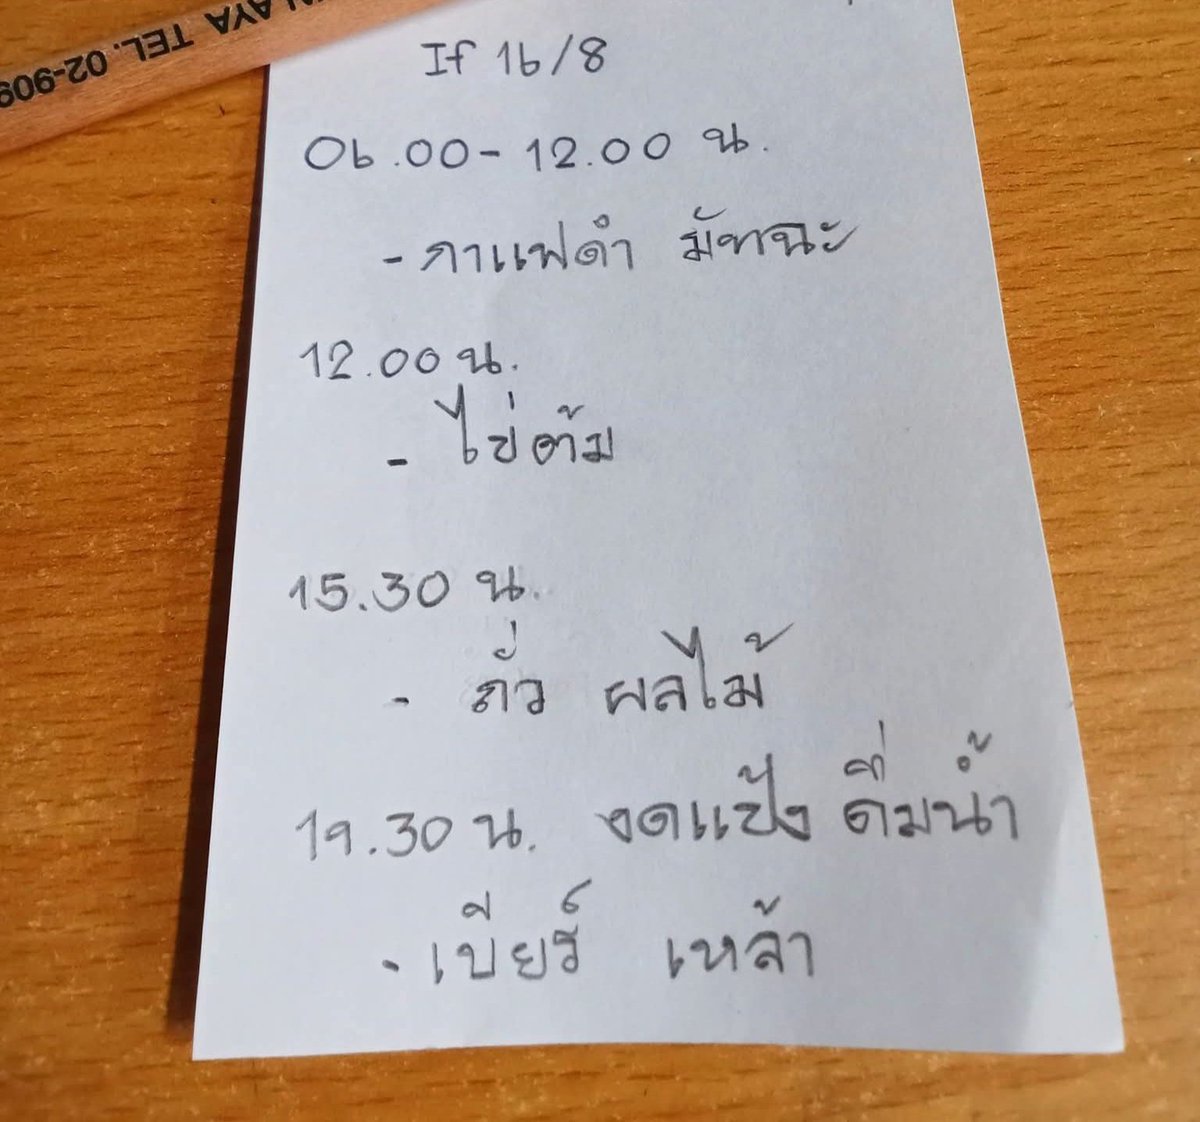 ALAYA TEL. 02-909
If 16/8
06.00-12.00 น.
- กาแฟดำ มัทฉะ
12.00 น.
- ไข่ต้ม
15.30 น.
- ถั่ว ผลไม้
19.30 น. งดแป้ง ดื่มน้ำ
- เบียร์ เหล้า